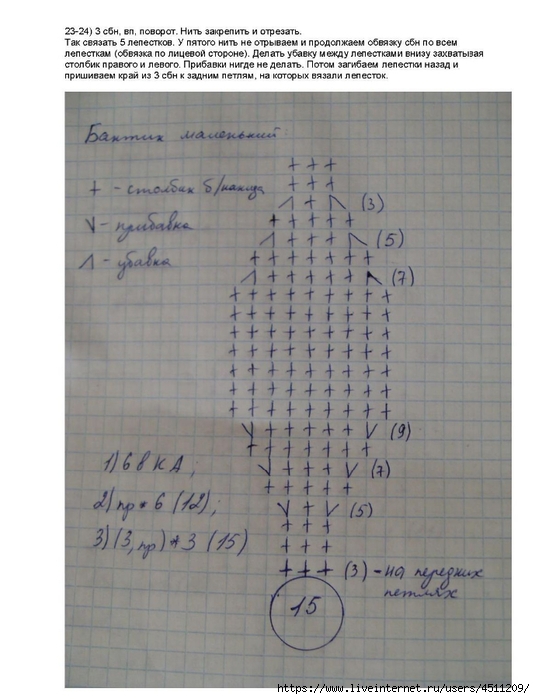 23-24) 3 сбн, вп, поворот. Нить закрепить и отрезать.
Так связать 5 лепестков. У пятого нить не отрываем и продолжаем обвязку сбн по всем
лепесткам (обвязка по лицевой стороне). Делать убавку между лепестками внизу захватывая
столбик правого и левого. Прибавки нигде не делать. Потом загибаем лепестки назад и
пришиваем край из 3 сбн к задним петлям, на которых вязали лепесток.
Бантик маленький
+ + +
+ - столбик б/накида + + +
Λ + Λ (3)
V - прибавка + + + + +
Λ + + + Λ (5)
Λ - убавка + + + + + + +
Λ + + + + + Λ (7)
+ + + + + + + + +
+ + + + + + + + +
+ + + + + + + + +
+ + + + + + + + +
+ + + + + + + + +
+ + + + + + + + +
+ + + + + + + + +
V + + + + + V (9)
+ + + + + + +
1) 6 в КА; V + + + V (7)
+ + + + +
2) пр * 6 (12); V + V (5)
+ + +
3) (3, пр) * 3 (15) + + +
+ + + (3) - на передних
петлях
15
https://www.liveinternet.ru/users/4511209/